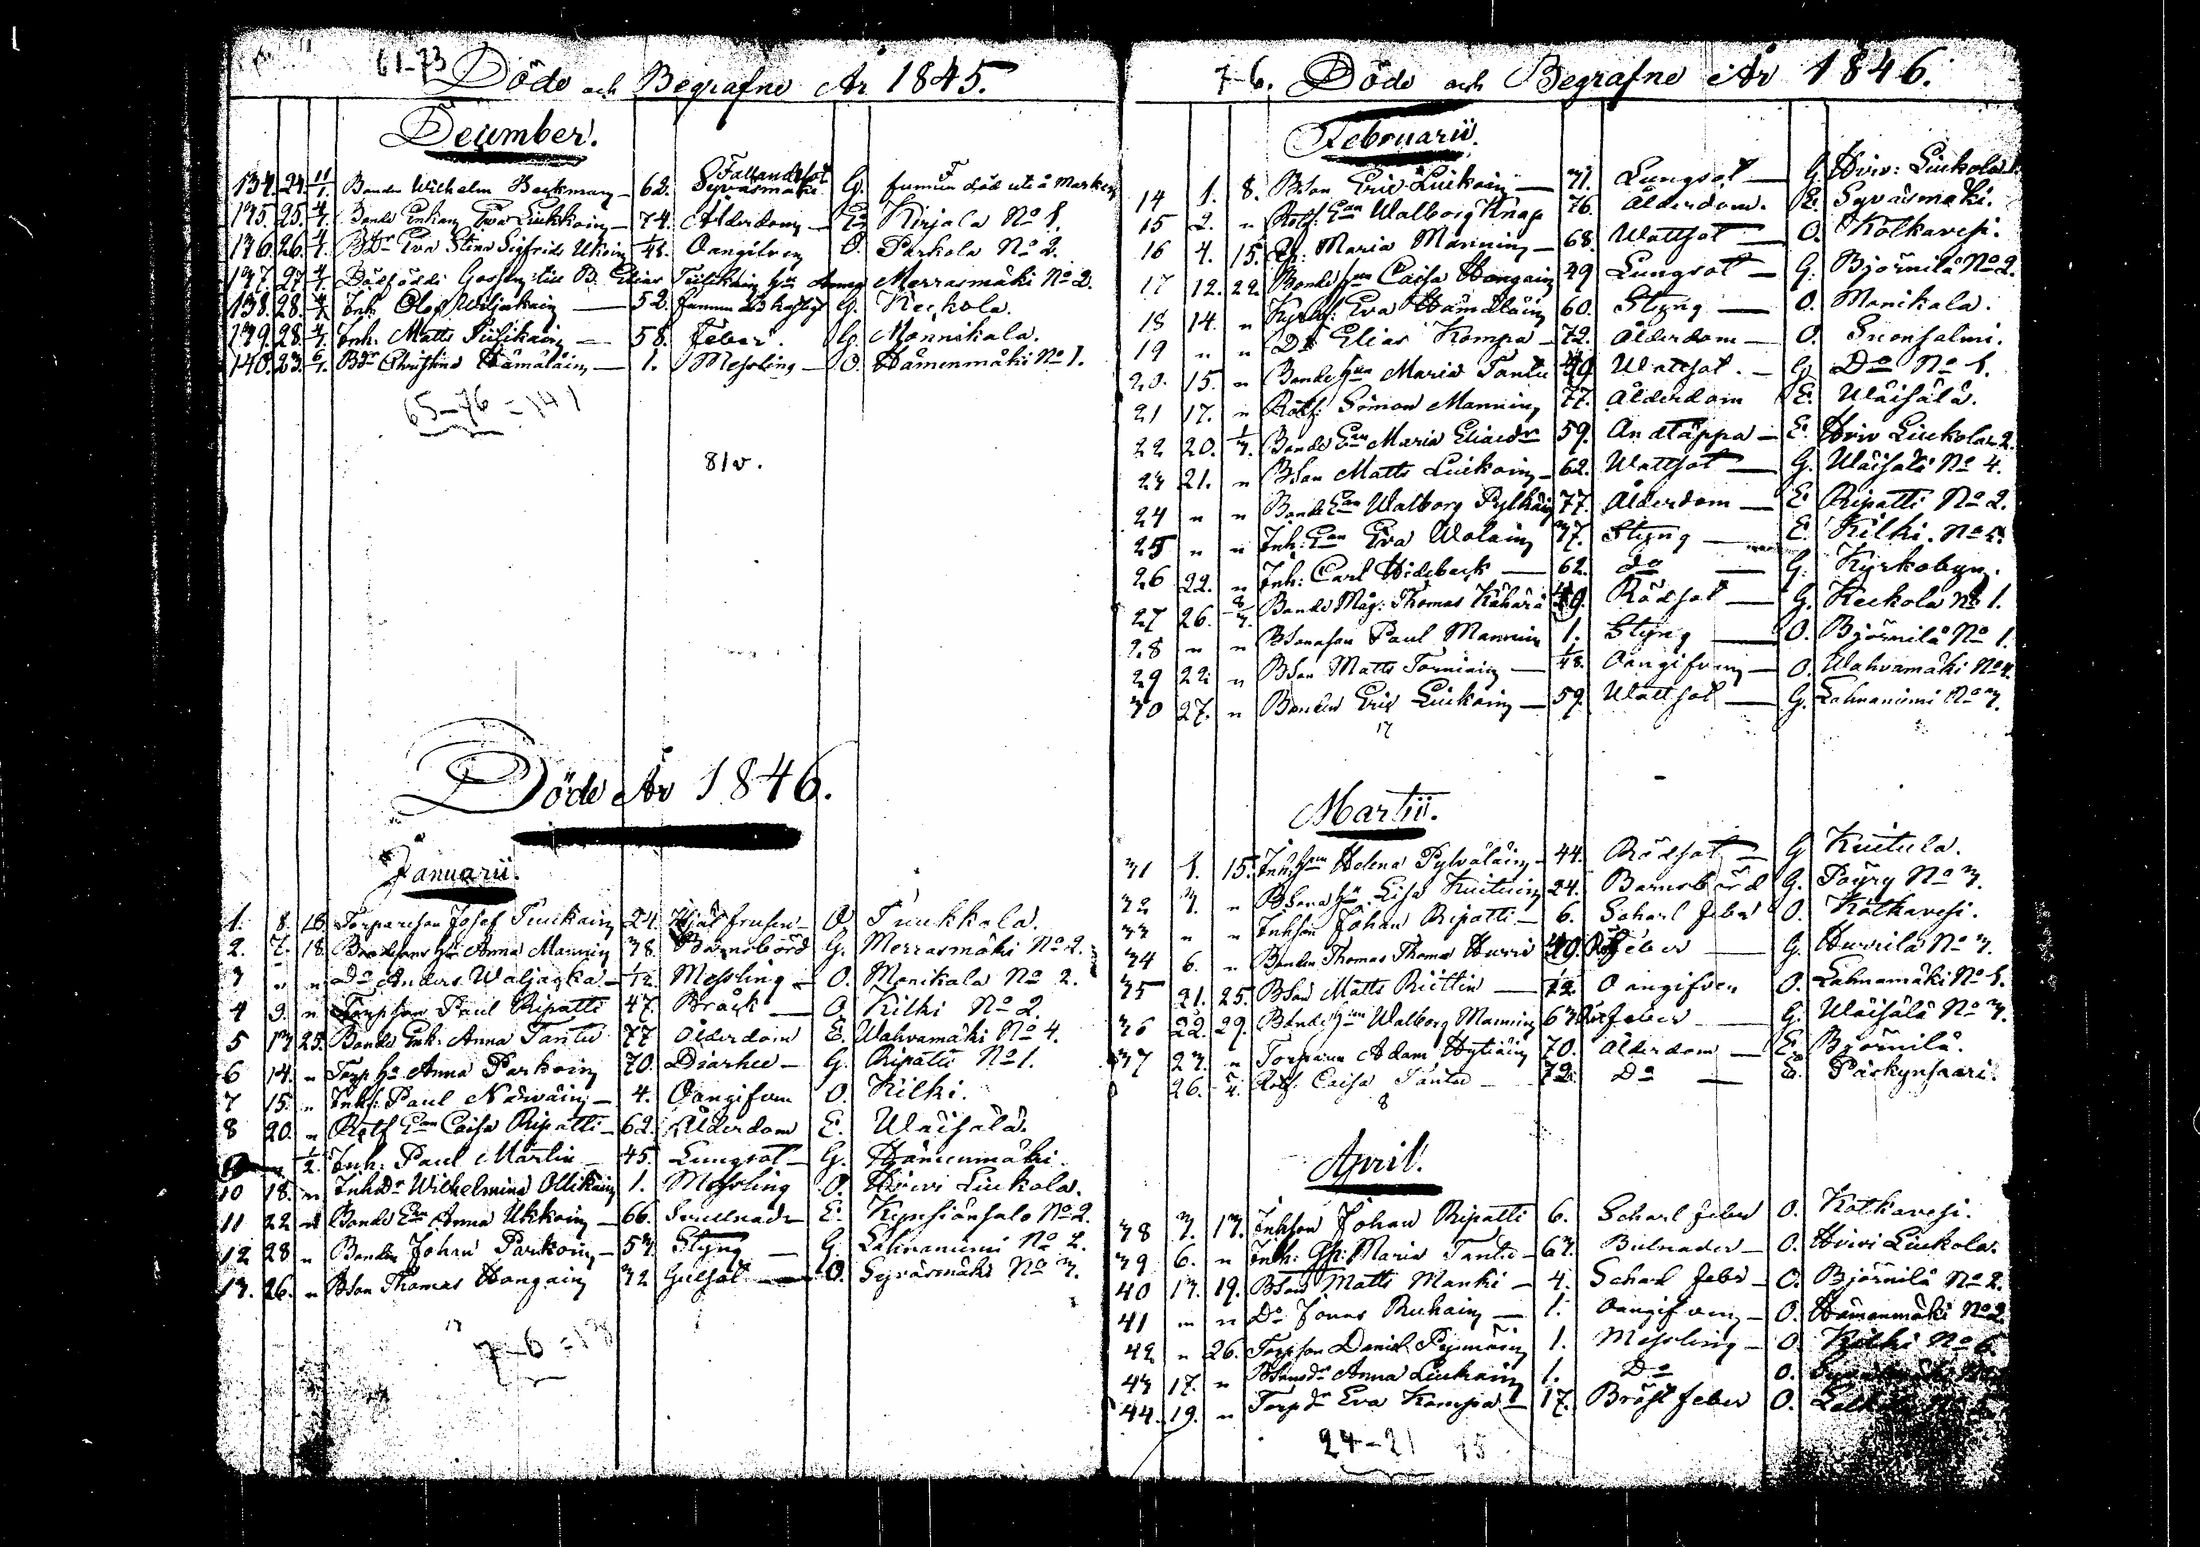 61-73
Döde och Begrafne År 1845.
December.
134. 24. 11/1. Bonden Wilhelm Backman — 62. Fallandsot Syväsmäki G. funnen död ute å Marken
135. 25. 4/1. Bonde Enkan Eva Liukkoin — 74. Ålderdom — E. Kirjala No 1.
136. 26. 4/1. BDr Eva Stina Sigfrids Ukoin 1/48. Oangifven O. Parkola No 2.
137. 27. 4/1. Dödföddt Gossen till B. Elias Tiilikain Hu Anna Merrasmäki No 2.
138. 28. 4/1. Inh. Olof Wiljakain — 52. funnen död hastigt G. Keckola.
139. 28. 4/1. Inh. Matts Tiilikain — 58. Feber. G. Monnikala.
140. 23. 6/1. BDr Christina Hämäläin — 1. Messling — O. Hämenmäki No 1.
65-76 = 141
81v.
Döde År 1846.
Januarii.
1. 8. 18. Torpareson Josef Tiuckain 24. Ihjäl frusen — O Tiuckkola.
2. 7. 18. Bondens Hu Anna Mannin 38. Barnsbörd G. Merrasmäki No 2.
3 " " Do Anders Waljacka — 1/12. Messling — O. Monikala No 2.
4 9. " Torpson Paul Ripatti 47. Bråck — O. Kilki No 2.
5 13 25. Bonde Enk. Anna Tantu 77 Ålderdom E. Wahvamäki No 4.
6 14. " Torp Hu Anna Parkoin 70. Diarhee — G. Ripatti No 1.
7 15. " Inhs. Paul Närväin — 4. Oangifven O. Kilki.
8 20. " Rotf Ean Caisa Ripatti — 62. Ålderdom E. Wäisälä.
1/2. Inh. Paul Martin — 45. Lungsot — G. Hämenmäki.
10 18. " InhDr Wilhelmina Ollikain 1. Messling O. Hirvi Liukola.
11 22 " Bonde Ean Anna Ukkoin — 66. Svullnad E. Kynsiänsalo No 2.
12 28 " Bonden Johan Parkoin — 53. Styng — G. Lahnaniemi No 2.
13. 26. " BSon Thomas Hongain 32 Gulsot — O. Syväsmäki No 3.
13
7-6 = 13
7-6. Döde och Begrafne År 1846.
Februarii.
14 1. 8. BSon Eric Liukoin — 31. Lungsot — G Hirv: Liuckola
15 2. " Rotf. Ean Walborg Knap 76. Ålderdom. E. Syväsmäki.
16 4. 15. Gp. Maria Mannin — 68. Wattsot — O. Kolkavesi.
17 12. 22. Bonde Hun Caisa Hongain 49 Lungsot — G. Björnilä No 2.
18 14. " Kyrkf: Eva Hämäläin 60. Styng — O. Monikala.
19 " " Dr Elias Kompa — 72. Ålderdom — O. Snonsalmi.
20. 15. " Bonde Hun Maria Tantu 49 Wattsot. — G. Do No 1.
21 17. " Rotf. Simon Mannin 77. Ålderdom E. Wäisälä.
22 20. 1/3. Bonde Ean Maria Eliasdr 59. Andtäppa — E. Hirv Liukola 2.
23 21. " BSon Matts Liukoin — 62. Wattsot — G. Wäisälä No 4.
24 " " Bonde Ean Walborg Pylkäin 77. Ålderdom — E Ripatti No 2.
25 " " Inh: Ean Eva Wolain 37. Styng — E. Kilki.
26 22. " Inh: Carl Hideback — 62. do — G. Kyrkobyn.
27 26. 8/3. Bonde Måg: Thomas Kähärä 49. Rödsot — G. Keckola No 1.
28 " " BSonason Paul Mannin 1. Styng — O. Björnilä No 1.
29 22. " BSon Matts Torniain — 1/48. Oangifven — O. Wahvamäki No 4.
30 27. " Bonden Eric Liukoin — 59. Wattsot — G. Lahnaniemi No 3.
17
Martii.
31 1. 15. Inh Hun Helena Pylväläin — 44. Rödsot — G Kuitula.
32 3. " BSons Hu. Lisa Kuituin 24. Barnsbörd G. Pöyry No 3.
33 " " Inhson Johan Ripatti — 6. Scharl feber O. Kolkavesi.
34 6. " Bonden Thomas Thomas Hurri 49. Röt feber — G. Hurrilä No 3.
35 21. 25. BSon Matts Riettin — 1/12. Oangifven O. Lahnamäki No 1.
36 22. 29. Bonde Hun Walborg Mannin 63 Röt feber — G. Wäisälä No 3.
37 23. " Torparen Adam Hytiäin 70. Ålderdom — E. Björnilä.
26. 5/4. Rotf. Caisa Tantu — 72. Do — E. Päskynsaari.
8
April.
38 3. 13. Inhson Johan Ripatti 6. Scharl feber O. Kolkavesi.
39 6. " Inh: Gp: Maria Tantu — 63. Bulnader — O. Hirvi Liukola.
40 13. 19. BSon Matts Manki — 4. Scharl feber — O. Björnilä No 2.
41 " " Do Jonas Ruhain — 1. Oangifven — O. Hämenmäki No 2
42 " 26. Torpson Daniel Pymäin 1. Messling — O. Kilki No 6.
43 17. " BSonsdr Anna Liukoin 1. Do O.
44. 19. " Torp dr Eva Kompa — 17. Bröst feber O.
24-21 15